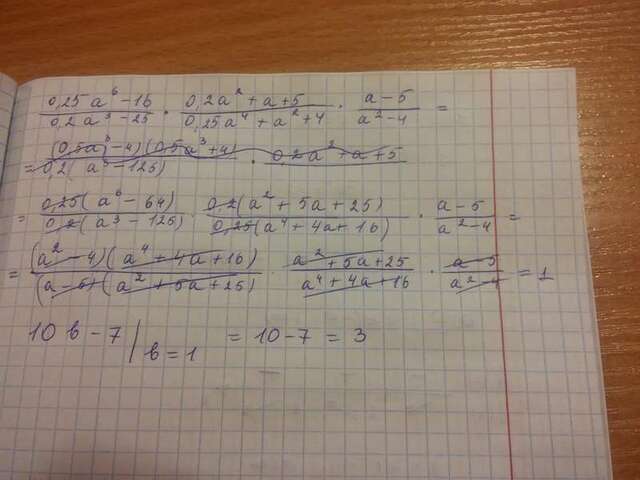 (0,25a⁶-16)/(0,2a³-25) · (0,2a²+a+5)/(0,25a⁴+a²+4) · (a-5)/(a²-4) =
= (0,5a³-4)(0,5a³+4)/0,2(a³-125) · 0,2a²+a+5
= 0,25(a⁶-64)/0,2(a³-125) · 0,2(a²+5a+25)/0,25(a⁴+4a+16) · (a-5)/(a²-4) =
= (a²-4)(a⁴+4a+16)/(a-5)(a²+5a+25) · (a²+5a+25)/(a⁴+4a+16) · (a-5)/(a²-4) = 1
10b-7 | b=1 = 10-7 = 3